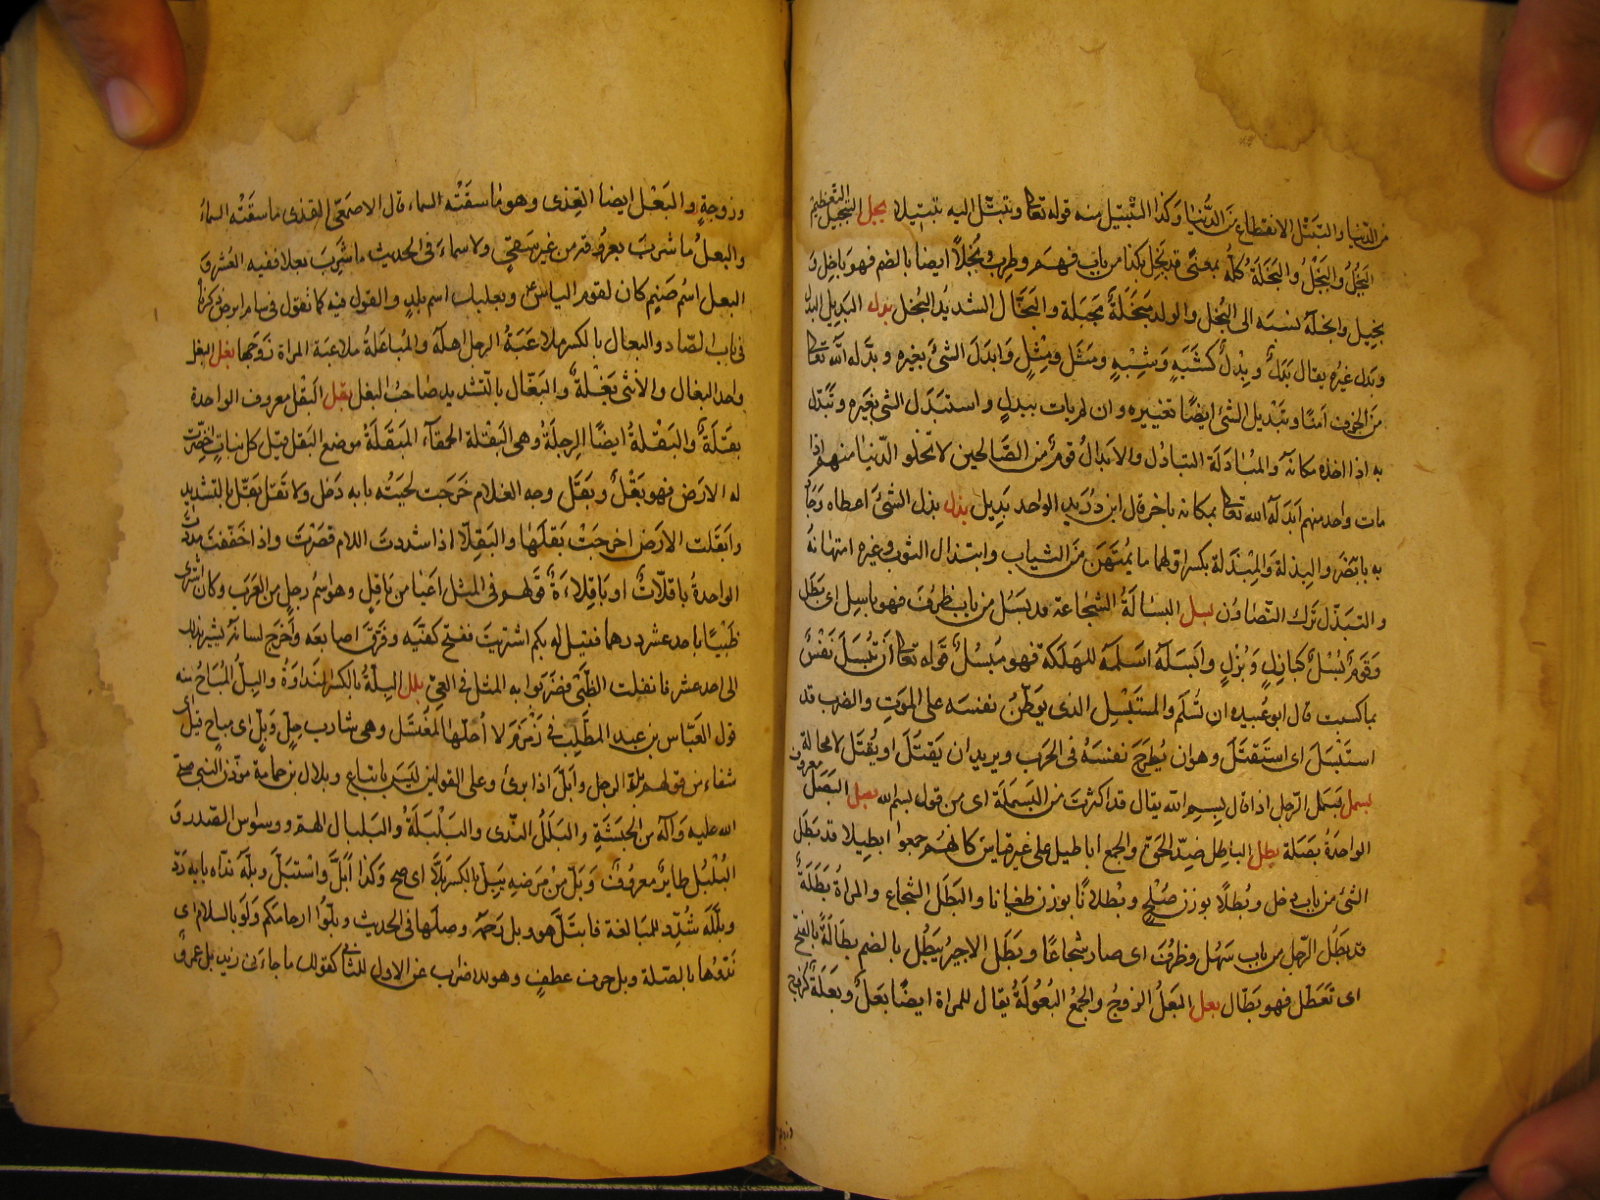 من الدنيا والتبتل الانقطاع من الدنيا وكذا التبتيل منه قوله تعالى وتبتل اليه تبتيلا بجل التبجيل التعظيم
البخل والبخل والبخلة كله بمعنى قد بخل بكذا من باب فهم وطرب وبخلا ايضا بالضم فهو باخل و
بخيل وابخله نسبه الى البخل والولد مبخلة مجبلة والبخال الشديد البخل بدل البديل البدل
وبدل غيره يقال بدل وبدل كشبه وشبه ومثل ومثل وابدل الشئ بغيره وبدله الله تعالى
من الخوف امنا وتبديل الشئ ايضا تغييره وان لم يات ببدل واستبدل الشئ بغيره وتبدل
به اذا اخذه مكانه والمبادلة التبادل والابدال قوم من الصالحين لا تخلو الدنيا منهم اذا
مات واحد منهم ابدله الله تعالى بمكانه باخر قال ابن دريد الواحد بديل بذل بذل الشئ اعطاه وجاد
به بابه نصر والبذلة والمبذلة بكسر اولهما ما يمتهن من الثياب وابتذال الثوب وغيره امتهانه
والتبذل ترك التصاون بسل البسالة الشجاعة قد بسل من باب ظرف فهو باسل اى بطل
وقوم بسل كبازل وبزل وابسله اسلمه للهلكة فهو مبسل قوله تعالى ان تبسل نفس
بما كسبت قال ابو عبيدة ان تسلم والمستبسل الذى يوطن نفسه على الموت والضرب قد
استبسل اى استقتل وهو ان يطرح نفسه فى الحرب ويريد ان يقتل او يقتل لا محالة
بسمل بسمل الرجل اذا قال بسم الله يقال قد اكثرت من البسملة اى من قول بسم الله بصل البصل معروف
الواحدة بصلة بطل الباطل ضد الحق والجمع اباطيل على غير قياس كانهم جمعوا ابطيلا قد بطل
الشئ من باب دخل وبطلا بوزن صلح وبطلانا بوزن طغيانا والبطل الشجاع والمراة بطلة
قد بطل الرجل من باب سهل وظرف اى صار شجاعا وبطل الاجير يبطل بالضم بطالة بالفتح
اى تعطل فهو بطال بعل البعل الزوج والجمع البعولة يقال للمراة ايضا بعل وبعلة كزوج
وزوجة والبعل ايضا العذى وهو ما سقته السماء قال الاصمعى العذى ما سقته السماء
والبعل ما شرب بعروقه من غير سقى ولا سماء فى الحديث ما شرب بعلا ففيه العشر و
البعل اسم صنم كان لقوم الياس وبعلبك اسم بلد والقول فيه كما نقول فى سام ابرص ذكرنا
فى باب الصاد والبعال بالكسر ملاعبة الرجل اهله والمباعلة ملاعبة المراة زوجها بغل البغل
واحد البغال والانثى بغلة والبغال بالتشديد صاحب البغل بقل البقل معروف الواحدة
بقلة والبقلة ايضا الرجلة وهى البقلة الحمقاء المبقلة موضع البقل قيل كل نبات اخضرت
له الارض فهو بقل وبقل وجه الغلام خرجت لحيته بابه دخل ولا تقل بقل بالتشديد
وابقلت الارض اخرجت بقلها والباقلا اذا شددت اللام قصرت واذا خففت مددت
الواحدة باقلات او باقلاءة قولهم فى المثل اعيا من باقل وهو اسم رجل من العرب وكان اشترى
ظبيا باحد عشر درهما فقيل له بكم اشتريت ففتح كفيه وفرق اصابعه واخرج لسانه يشير بذلك
الى احد عشر فانفلت الظبى فضربوا به المثل فى العى بلل البلة بالكسر النداوة والبل المباح منه
قول العباس بن عبد المطلب فى زمزم لا احلها لمغتسل وهى شارب حل وبل اى مباح قيل اى
شفاء من قولهم بل الرجل وابل اذا برئ وعلى القولين ليس باتباع وبلال بن حمامة موذن النبى صلى
الله عليه وآله من الحبشة والبلل الندى والبلبلة والبلبال الهم ووسواس الصدر و
البلبل طاير معروف وبل من مرضه يبل بالكسر بلا اى صح وكذا ابل واستبل وبله نداه بابه رد
وبلله شدد للمبالغة فابتل هو وبل رحمه وصلها فى الحديث وبلوا ارحامكم ولو بالسلام اى
ندوها بالصلة وبل حرف عطف وهو للاضراب عن الاول للثانى كقولك ما جاءنى زيد بل عمرو